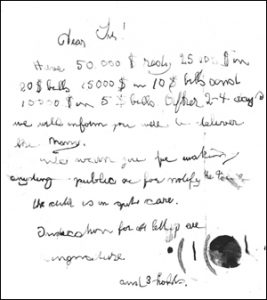 Dear Sir!
Have 50.000 $ redy 25 000 $ in
20 $ bills 15000 $ in 10 $ bills and
10000 $ in 5 $ bills After 2-4 days
we will inform you were to deliver
the Mony.
We warn you for making
anyding public or for notify the
the child is in gute care.
Indication for all letters are
singnature
and 3 holds.